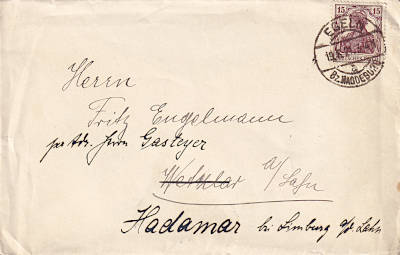 15 15
EGELN
a
Bz. MAGDEBURG
Herrn
Fritz Engelmann
per Adr. Herrn Gasteyer
Wetzlar a/Lahn
Hadamar bei Limburg a/d. Lahn